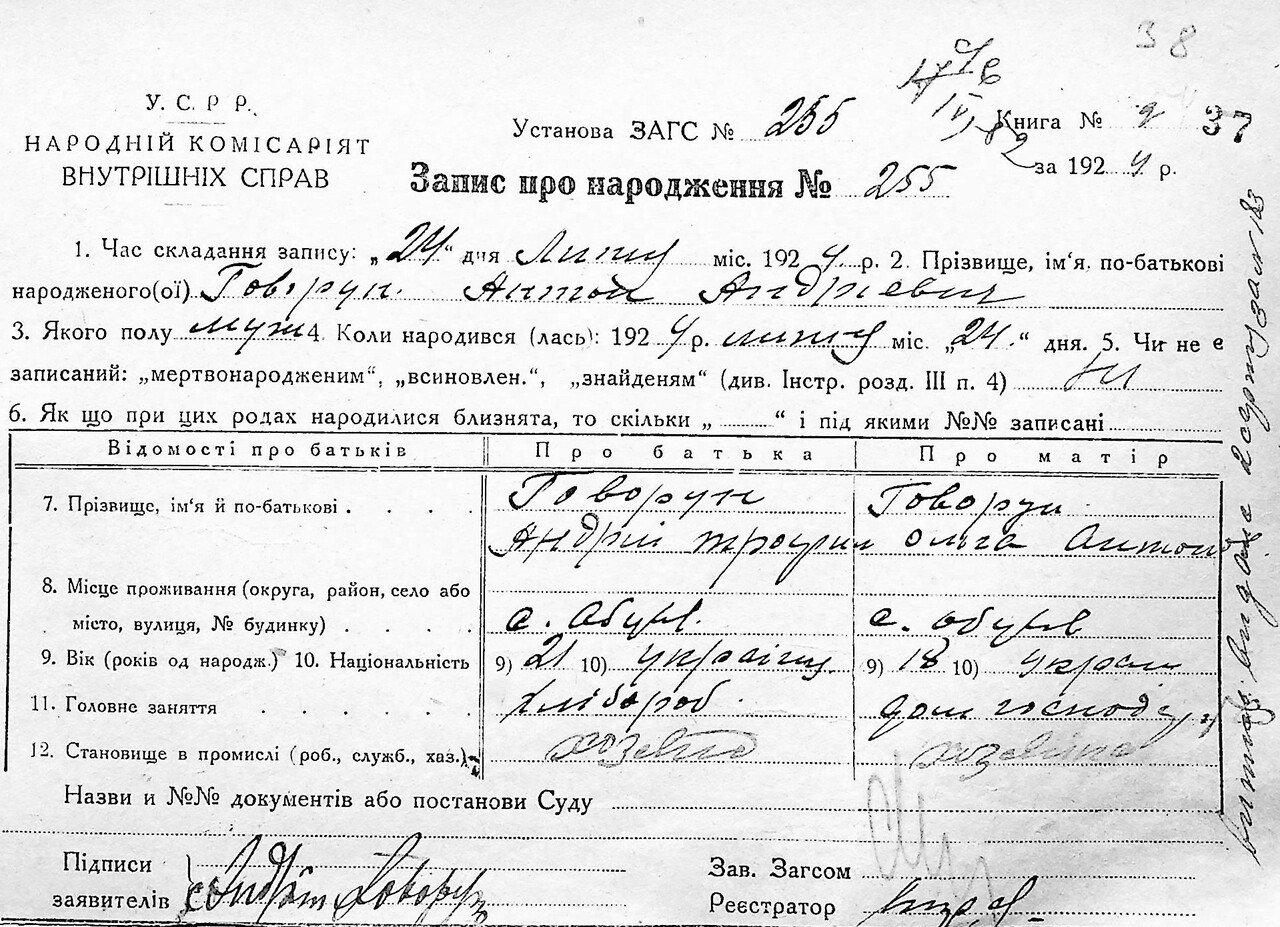 38
У. С. Р Р.
НАРОДНІЙ КОМІСАРІЯТ
ВНУТРІШНІХ СПРАВ
Установа ЗАГС № 255
Книга № 2 37
за 1924 р.
Запис про народження № 255
1. Час складання запису: „24“ дня Липця міс. 1924 р. 2. Прізвище, ім'я, по-батькові
народженого(ої) Говорун Антон Андріевич
3. Якого полу муж 4. Коли народився (лась): 1924 р. липця міс. „24“ дня. 5. Чи не є
записаний: „мертвонародженим“, „всиновлен.“, „знайденям“ (див. Інстр. розд. III п. 4) Ні
6. Як що при цих родах народилися близнята, то скільки „ “ і під якими №№ записані
Відомості про батьків Про батька Про матір
7. Прізвище, ім'я й по-батькові . . . . Говорун Говорун
Андрій Ольга Антон
8. Місце проживання (округа, район, село або
місто, вулиця, № будинку) . . . . с. с.
9. Вік (років од народж.) 10. Національність 9) 21 10) українц 9) 18 10) украін
11. Головне заняття . . . . . . хлібороб дом господ
12. Становище в промислі (роб., служб., хаз.)
Назви и №№ документів або постанови Суду
Підписи Зав. Загсом
заявителів Андрій Говорун Реєстратор